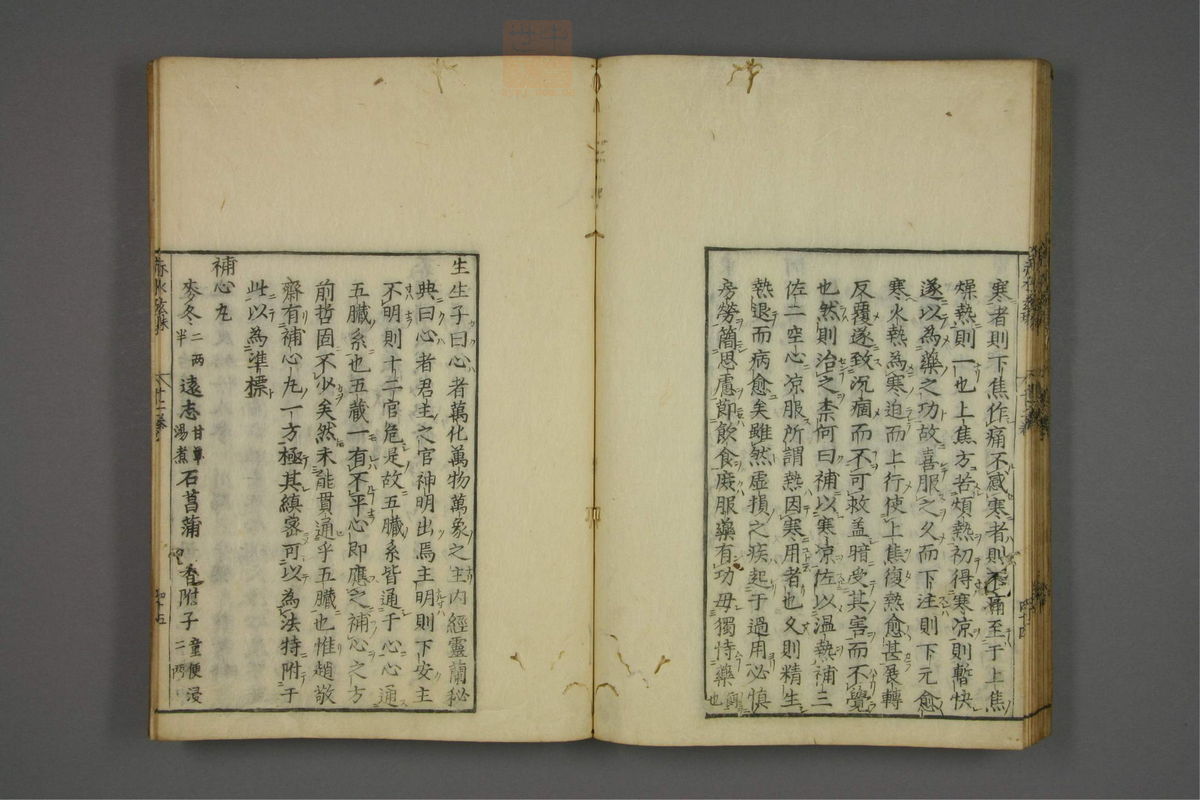 寒者則下焦作痛不感寒者則不痛至于上焦
燥熱則一也上焦方若煩熱初得寒凉則暫快
遂以為藥之功故喜服之久而下注則下元愈
寒火熱為寒迫而上行使上焦復熱愈甚展轉
反覆遂致沉痼而不可救盖暗受其害而不覺
也然則治之柰何曰補以寒凉佐以温熱補三
佐二空心凉服所謂熱因寒用者也久則精生
熱退而病愈矣雖然虚損之疾起于過用必慎
房勞簡思慮節飲食庻服藥有功毋獨恃藥也
生生子曰心者萬化萬物萬象之主内經靈蘭秘
典曰心者君主之官神明出焉主明則下安主
不明則十二官危是故五臓系皆通于心心通
五臓系也五藏一有不平心即應之補心之方
前哲固不少矣然未能貫通乎五臓也惟趙敬
齋有補心丸一方極其縝密可以為法特附于
此以為準標
補心丸
麥冬二两半 遠志甘草湯煮 石菖蒲 香附子童便浸二两
赤水玄珠